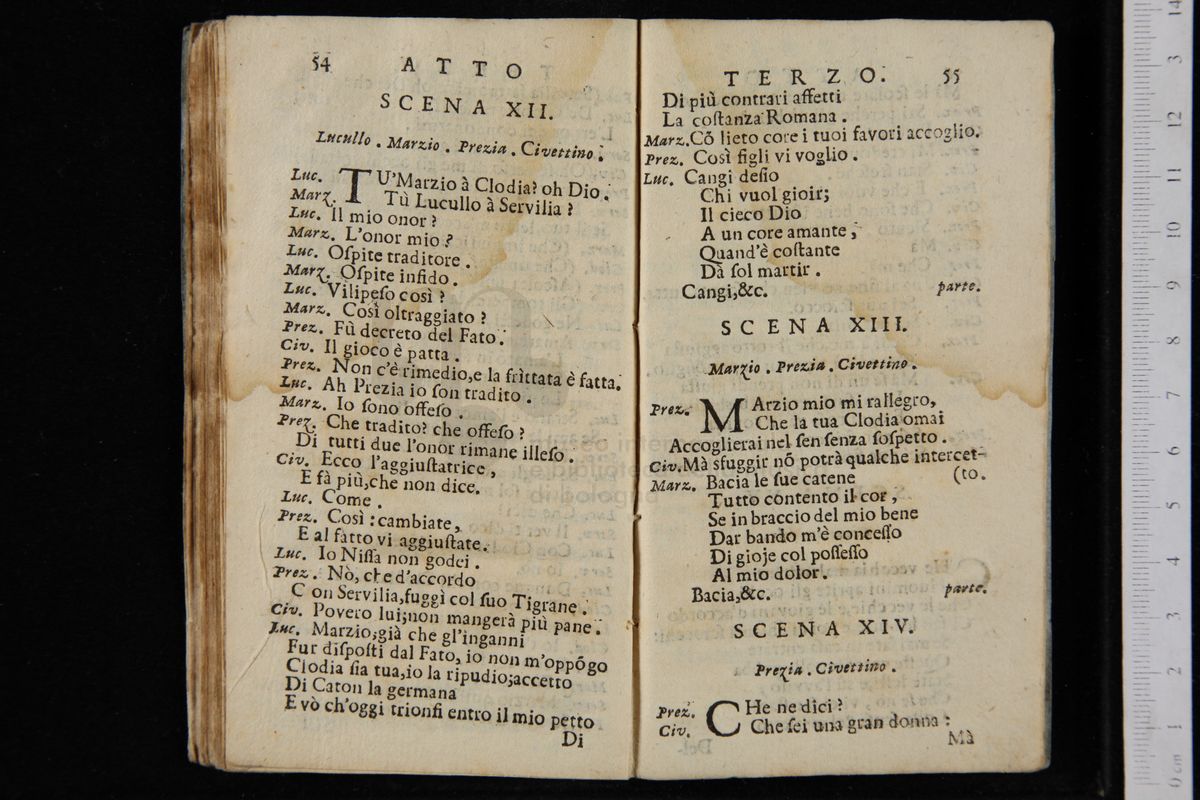 54 ATTO
SCENA XII.
Lucullo . Marzio . Prezia . Civettino .
Luc. TU'Marzio à Clodia? oh Dio .
Marz. Tù Lucullo à Servilia ?
Luc. Il mio onor ?
Marz. L'onor mio ?
Luc. Oſpite traditore .
Marz. Oſpite infido .
Luc. Vilipeſo così ?
Marz. Così oltraggiato ?
Prez. Fù decreto del Fato .
Civ. Il gioco è patta .
Prez. Non c'è rimedio,e la frittata è fatta.
Luc. Ah Prezia io ſon tradito .
Marz. Io ſono offeſo .
Prez. Che tradito? che offeſo ?
Di tutti due l'onor rimane illeſo .
Civ. Ecco l'aggiuſtatrice ,
E fà più,che non dice.
Luc. Come .
Prez. Così : cambiate,
E al fatto vi aggiuſtate.
Luc. Io Niſſa non godei .
Prez. Nò, che d'accordo
Con Servilia,fuggì col ſuo Tigrane .
Civ. Povero lui;non mangerà più pane .
Luc. Marzio;già che gl'inganni
Fur diſpoſti dal Fato, io non m'oppõgo
Clodia ſia tua,io la ripudio;accetto
Di Caton la germana
E vò ch'oggi trionfi entro il mio petto
Di
TERZO. 55
Di più contrari affetti
La coſtanza Romana .
Marz.Cõ lieto core i tuoi favori accoglio.
Prez. Così figli vi voglio .
Luc. Cangi deſio
Chi vuol gioir;
Il cieco Dio
A un core amante ,
Quand'è coſtante
Dà ſol martir .
Cangi,&c. parte.
SCENA XIII.
Marzio . Prezia . Civettino .
Prez. MArzio mio mi rallegro,
Che la tua Clodia omai
Accoglierai nel ſen ſenza ſoſpetto .
Civ.Mà sfuggir nõ potrà qualche intercet-
(to.
Marz. Bacia le ſue catene
Tutto contento il cor ,
Se in braccio del mio bene
Dar bando m'è conceſſo
Di gioje col poſſeſſo
Al mio dolor .
Bacia,&c. parte.
SCENA XIV.
Prezia . Civettino .
Prez. CHe ne dici ?
Civ. Che ſei una gran donna :
Mà